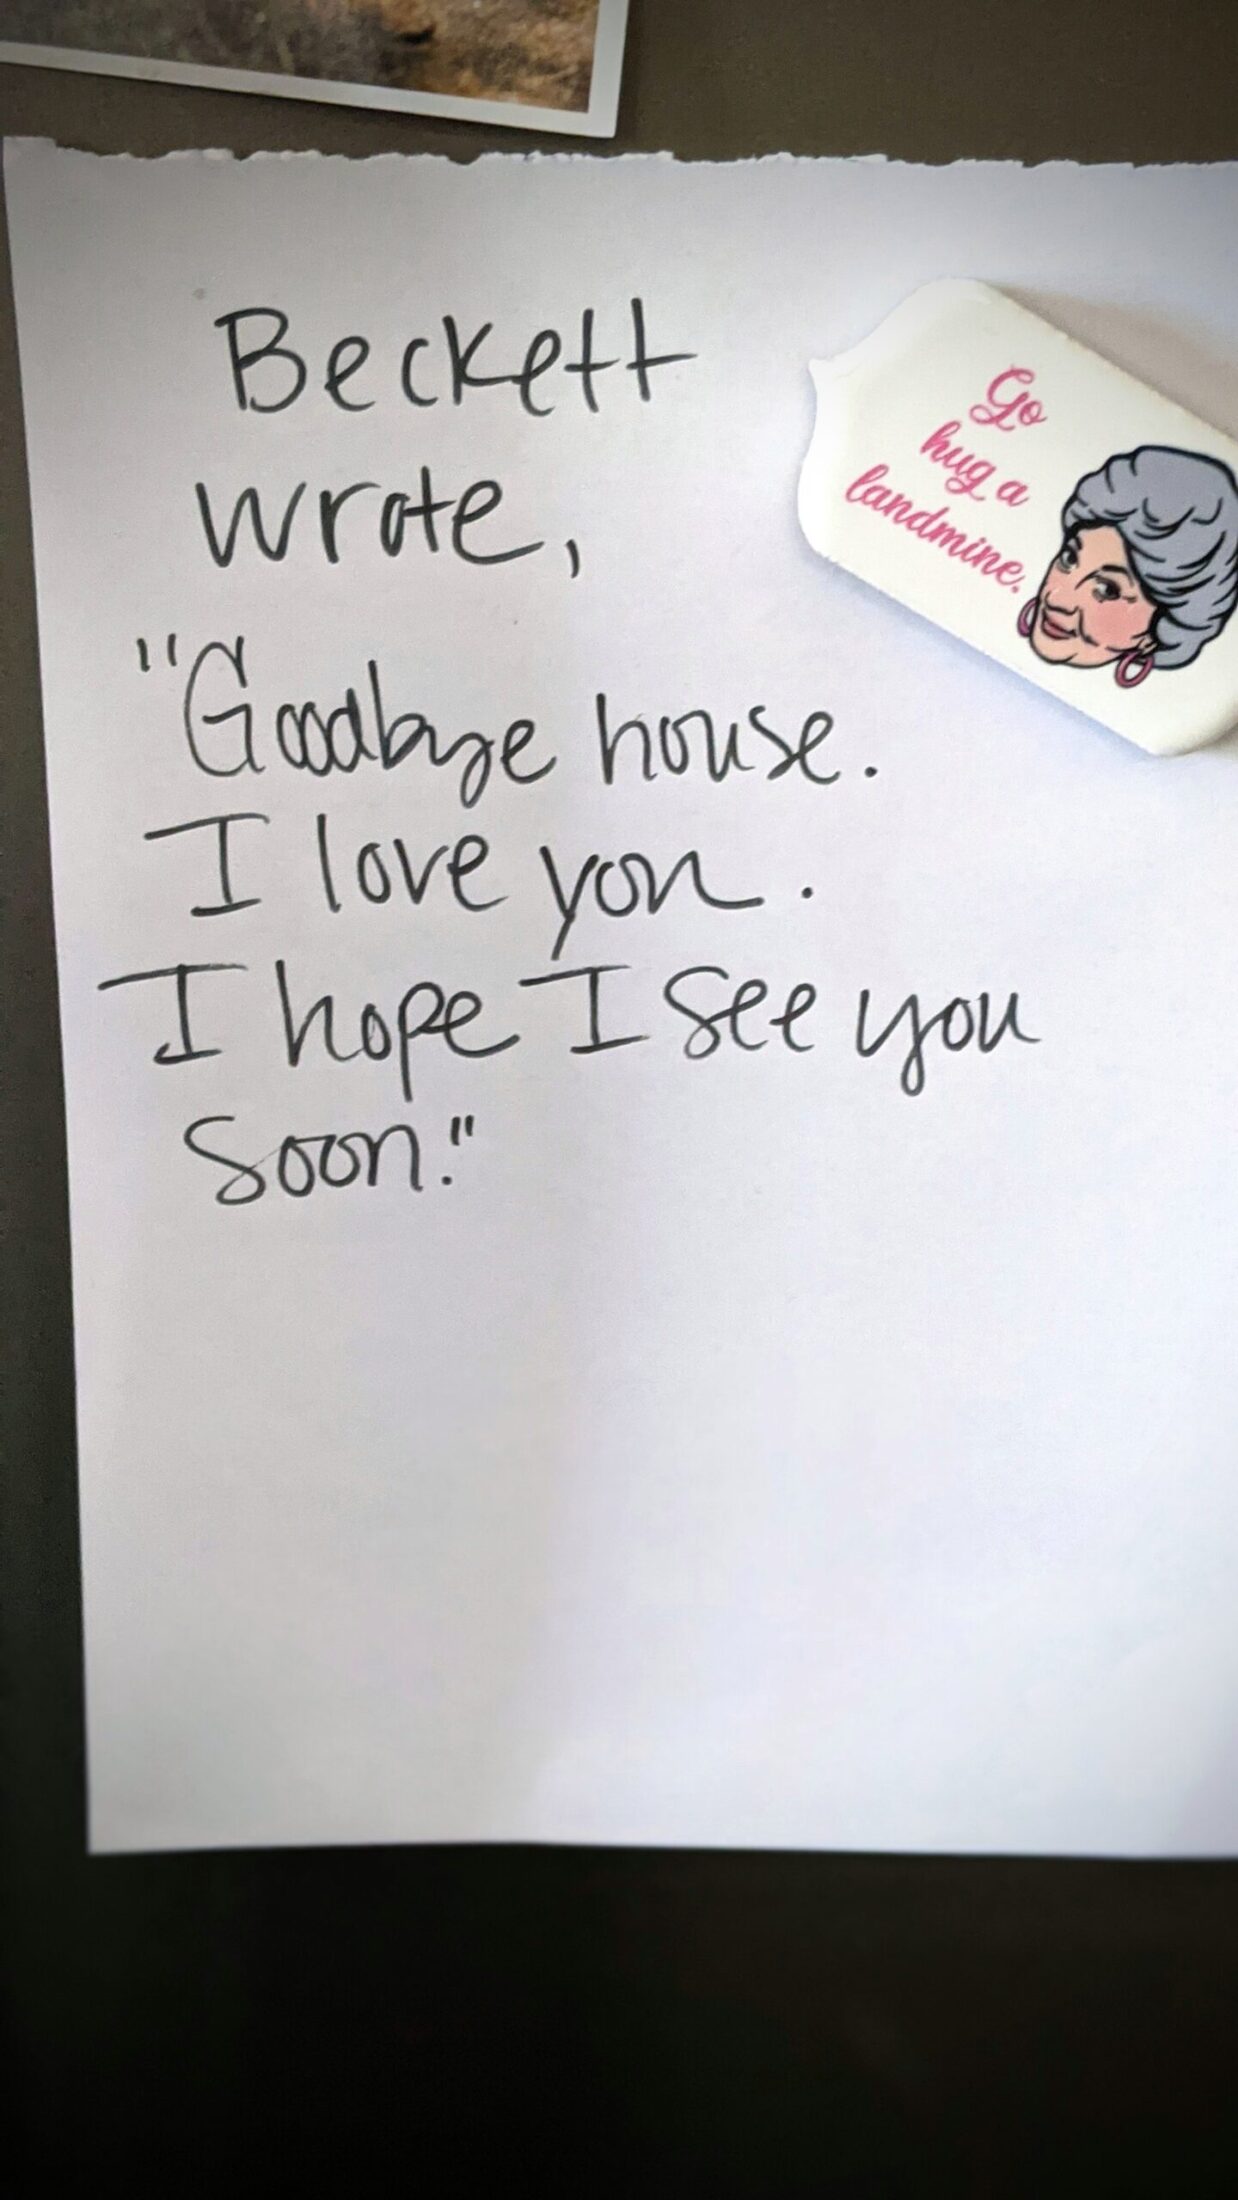 Beckett
wrote,
"Goodbye house.
I love you.
I hope I see you
soon."
Go
hug a
landmine.